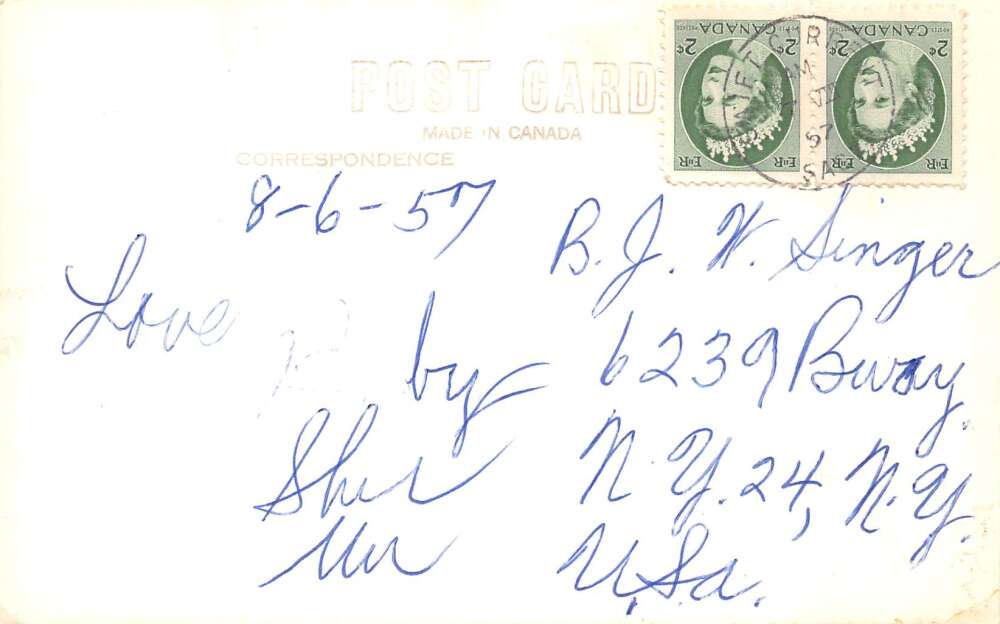 POST CARD
MADE IN CANADA
CORRESPONDENCE
CANADA 2¢ 2¢ E II R
CANADA 2¢ 2¢ E II R
AM
57
8-6-57
Love
by
B. J. W. Singer
6239 Bway.
N. Y. 24, N.Y.
U.S.a.